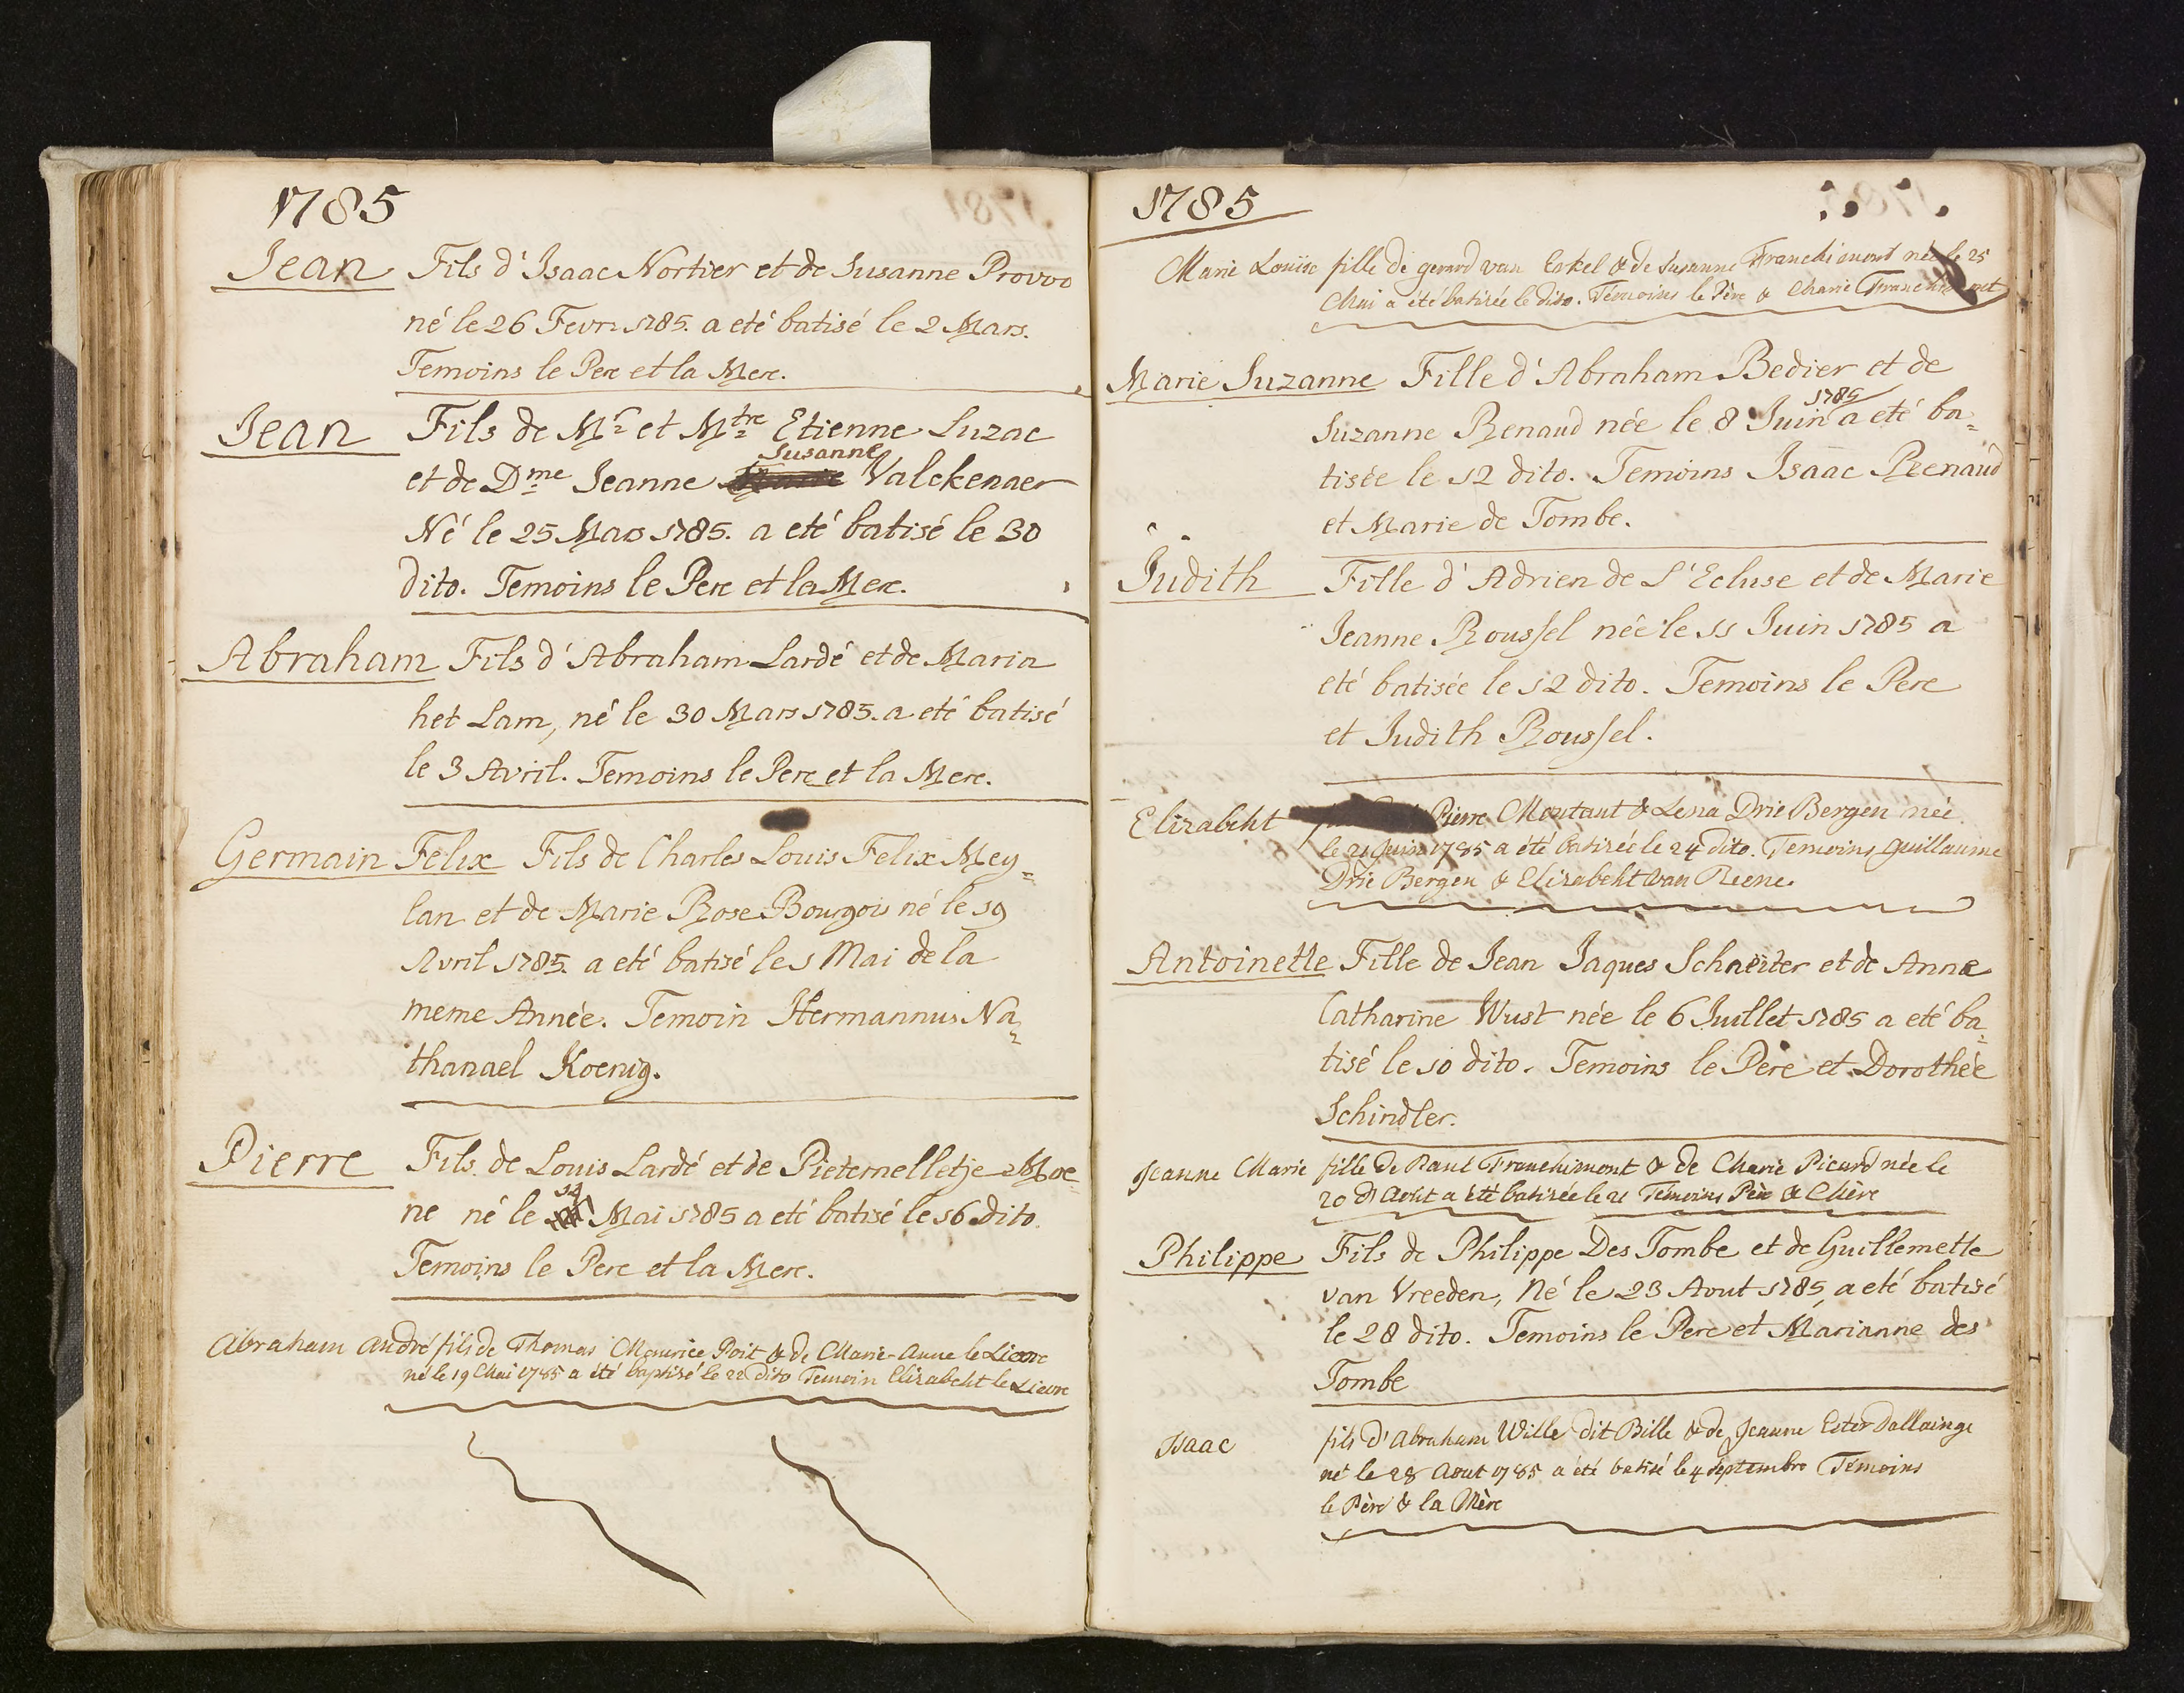 1785
Jean Fils d'Isaac Nortier et de Susanne Provoo
né le 26 Fevr. 1785. a eté batisé le 2 Mars.
Temoins le Pere et la Mere.
Jean Fils de Mr et Mtre Etienne Luzac
Susanne
et de Dme Jeanne Valckenaer
Né le 25 Mars 1785. a eté batisé le 30
dito. Temoins le Pere et la Mere.
Abraham Fils d'Abraham Lardé et de Maria
het Lam, né le 30 Mars 1785. a eté batisé
le 3 Avril. Temoins le Pere et la Mere.
Germain Felix Fils de Charles Louis Felix Mey=
lan et de Marie Rose Bourgois né le 19
Avril 1785. a eté batisé le 1 Mai de la
meme Année. Temoin Hermannus Na=
thanael Koenig.
Pierre Fils de Louis Lardé et de Pieternelletje Moe=
ne né le Mai 1785 a eté batisé le 16 dito.
Temoins le Pere et la Mere.
Abraham André fils de Thomas Maurice Poit & de Marie-Anne le Lievre
né le 19 Mai 1785 a été baptisé le 22 dito Temoin Elizabeht le Lievre
1785
Marie Louise fille de gerard van Eskel & de Susanne Franchimont née le 25
Mai a été batisée le dito. Témoins le Père & Marie
Marie Suzanne Fille d'Abraham Bedier et de
1785
Suzanne Renaud née le 8 Juin a eté ba=
tisée le 12 dito. Temoins Isaac Reenaud
et Marie de Tombe.
Judith Fille d'Adrien de L'Ecluse et de Marie
Jeanne Roussel née le 11 Juin 1785 a
eté batisée le 12 dito. Temoins le Pere
et Judith Roussel.
Elizabeht Pierre Montaut & Lena Drie Bergen née
le 21 Juin 1785 a été batisée le 24 dito. Temoins guillaume
Drie Bergen & Elizabeht van Reene.
Antoinette Fille de Jean Jaques Schneiter et de Anne
Catharine Wust née le 6 Juillet 1785 a eté ba=
tisé le 10 dito. Temoins le Pere et Dorothée
Schindler.
Jeanne Marie fille de Paul Franchimont & de Marie Picard née le
20 d'Aout a été batisée le 21 Témoins Père & Mère
Philippe Fils de Philippe Des Tombe et de Guillemette
van Vreeden, Né le 23 Aout 1785 a eté batisé
le 28 dito. Temoins le Pere et Marianne des
Tombe
Isaac fils d'Abraham Wille dit Bille & de Jeanne Ester Dallainge
né le 28 Aout 1785 a été batisé le 4 Septembre Témoins
le Père & la Mère